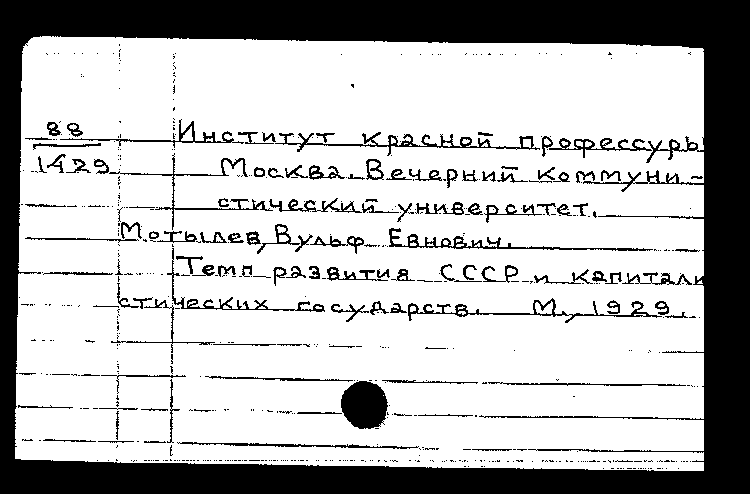 88
1429
Институт красной профессуры
Москва. Вечерний коммуни-
стический университет.
Мотылев, Вульф Евнович.
Темп развития СССР и капитали
стических государств. М., 1929.